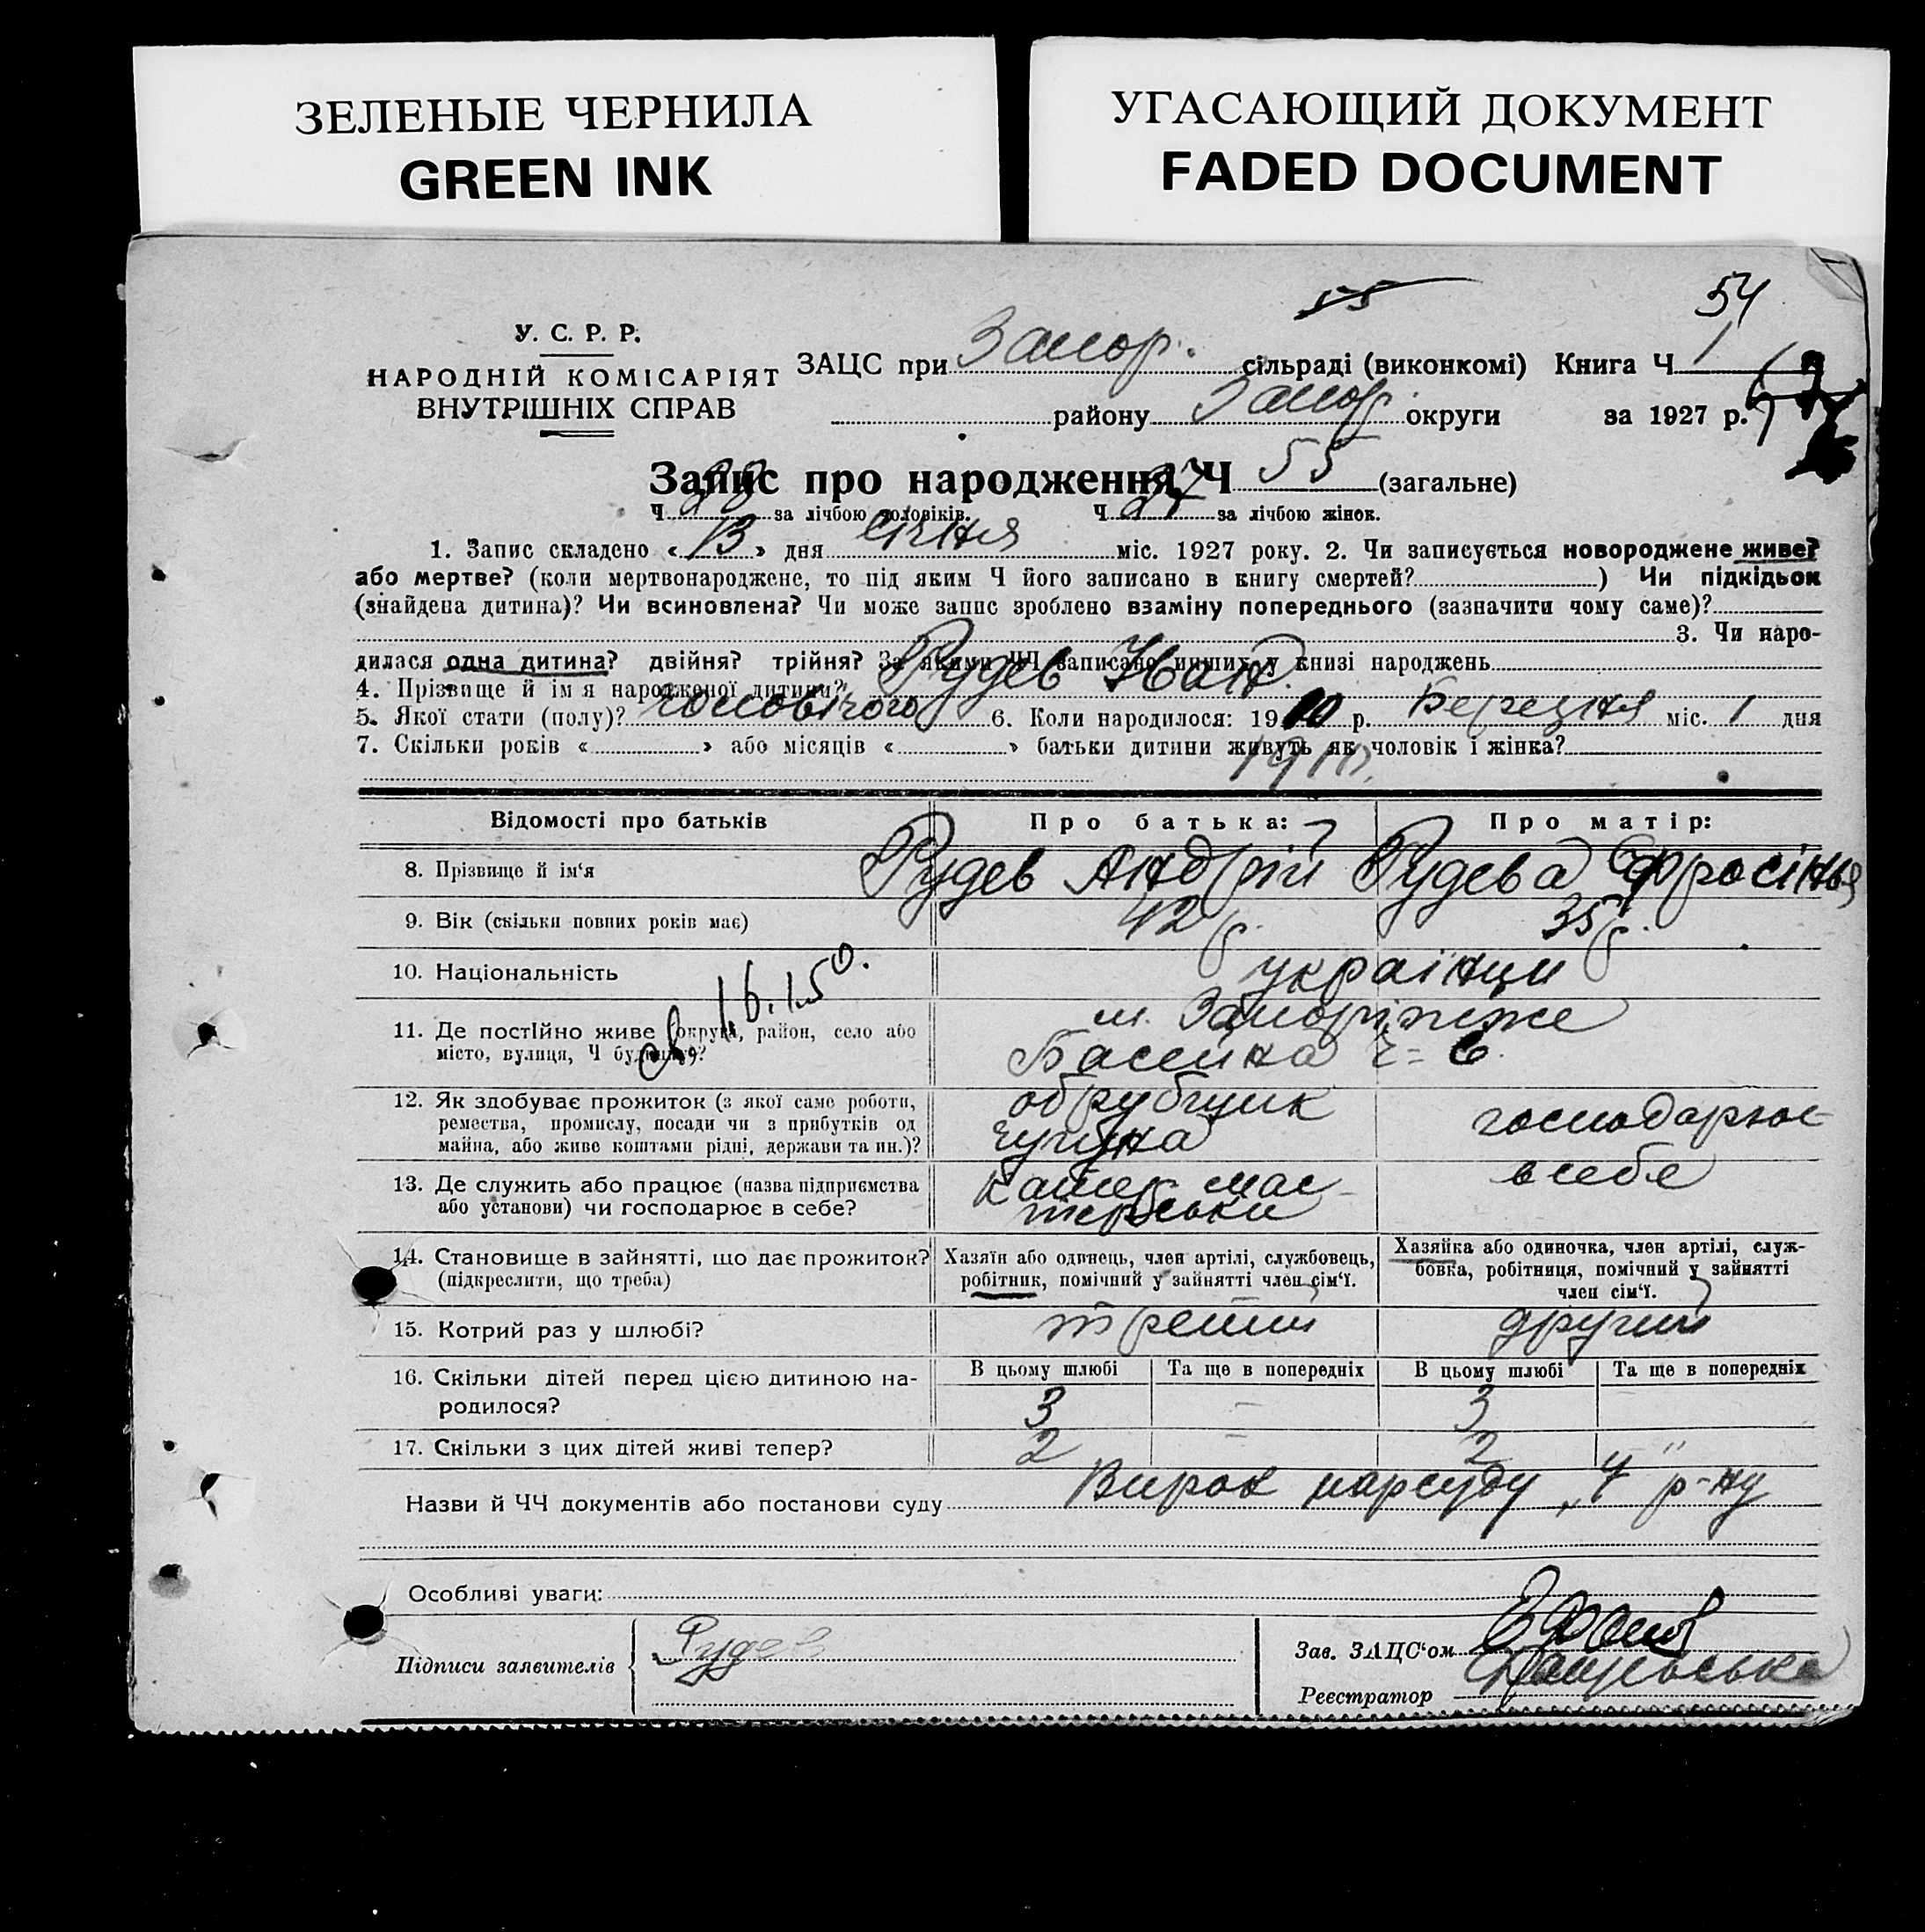 ЗЕЛЕНЫЕ ЧЕРНИЛА
GREEN INK
УГАСАЮЩИЙ ДОКУМЕНТ
FADED DOCUMENT
55
54
У. С. Р. Р.
НАРОДНІЙ КОМІСАРІЯТ
ВНУТРІШНІХ СПРАВ
ЗАЦС при Запор. сільраді (виконкомі) Книга Ч 1
району Запор. округи за 1927 р.
Запис про народження Ч 55 (загальне)
Ч 28 за лічбою чоловіків. Ч 27 за лічбою жінок.
1. Запис складено « 13 » дня Січня міс. 1927 року. 2. Чи записується новороджене живе?
або мертве? (коли мертвонароджене, то під яким Ч його записано в книгу смертей? ) Чи підкідьок
(знайдена дитина)? Чи всиновлена? Чи може запис зроблено взаміну попереднього (зазначити чому саме)?
3. Чи наро-
дилася одна дитина? двійня? трійня? За якими ЧЧ записано инших у книзі народжень
4. Прізвище й ім'я народженої дитини? Рудев Іван.
5. Якої стати (полу)? чоловічого 6. Коли народилося: 1910 р. Березня міс. 1 дня
7. Скільки років « » або місяців « » батьки дитини живуть як чоловік і жінка?
1910.
Відомості про батьків Про батька: Про матір:
8. Прізвище й ім'я Рудев Андрій Рудева Єфросінья
9. Вік (скільки повних років має) 42 р. 35 р.
10. Національність українци
16.1.50.
11. Де постійно живе (округа, район, село або м. Запоріжже
місто, вулиця, Ч будинку)? Басейна ч = 6.
12. Як здобуває прожиток (з якої саме роботи, обрубщик
ремества, промислу, посади чи з прибутків од чугуна господарює
майна, або живе коштами рідні, держави та ин.)?
13. Де служить або працює (назва підприємства мас- в себе
або установи) чи господарює в себе? терськи
14. Становище в зайнятті, що дає прожиток? Хазяїн або одинець, член артілі, службовець, Хазяйка або одиночка, член артілі, служ-
(підкреслити, що треба) робітник, помічний у зайнятті член сім'ї. бовка, робітниця, помічний у зайнятті
член сім'ї.
15. Котрий раз у шлюбі? третий другий
16. Скільки дітей перед цією дитиною на- В цьому шлюбі Та ще в попередніх В цьому шлюбі Та ще в попередніх
родилося? 3 - 3
17. Скільки з цих дітей живі тепер? 2 - 2
Назви й ЧЧ документів або постанови суду Вирок нарсуду „4" р-ну
Особливі уваги:
Підписи заявителів Рудев
Зав. ЗАЦС'ом
Реєстратор